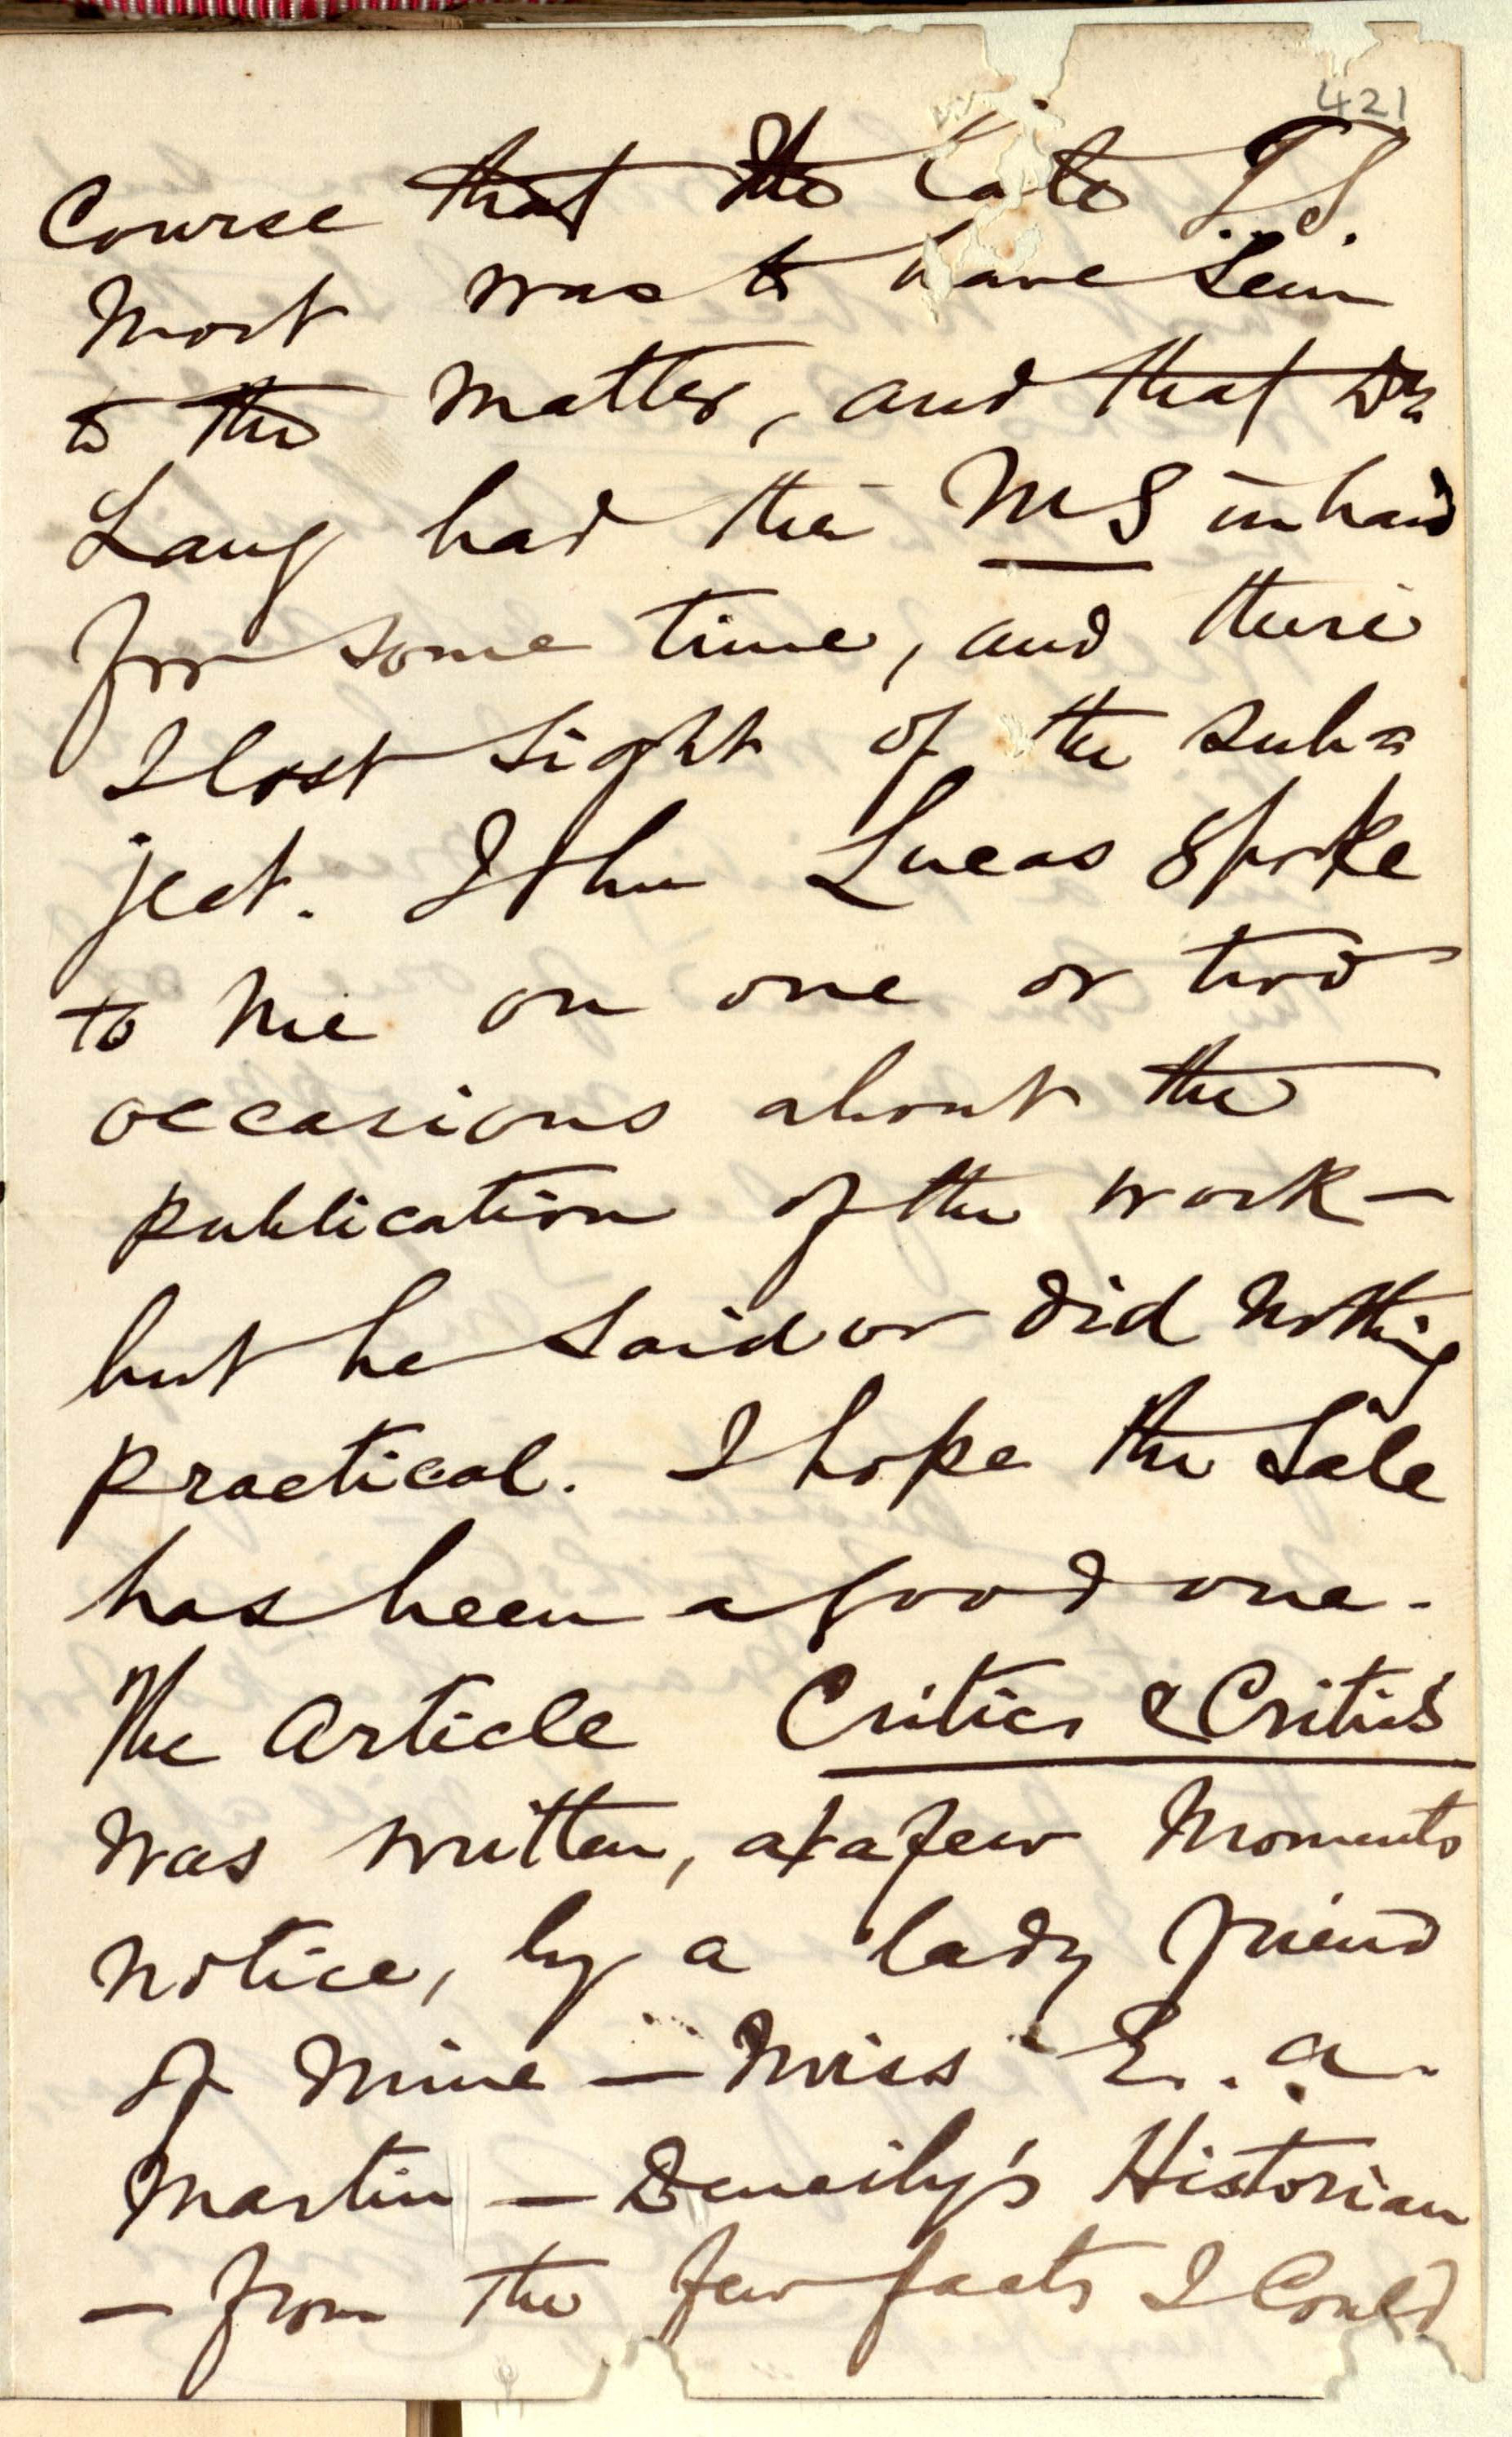 421
Course that the late T.S.
Mort was to have seen
to the matter, and that Dr
Lang had the MS in hand
for some time, and there
I lost sight of the sub=
ject. John Lucas spoke
to me on one or two
occasions about the
publication of the work —
but he said or did nothing
practical. I hope the sale
has been a good one.
The Article Critics & Critics
was written, at a few moments
notice, by a lady friend
of mine — Miss E. A.
Martin — Deneily's Historian
— from the few facts I could